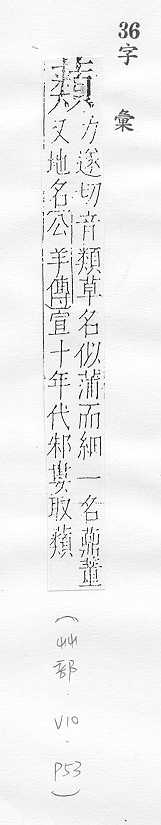 36字 彙
蘱
力遂切音類草名似蒲而細一名薡蕫
又地名公羊傳宣十年代邾婁取蘱
(艸部.V10.P53)